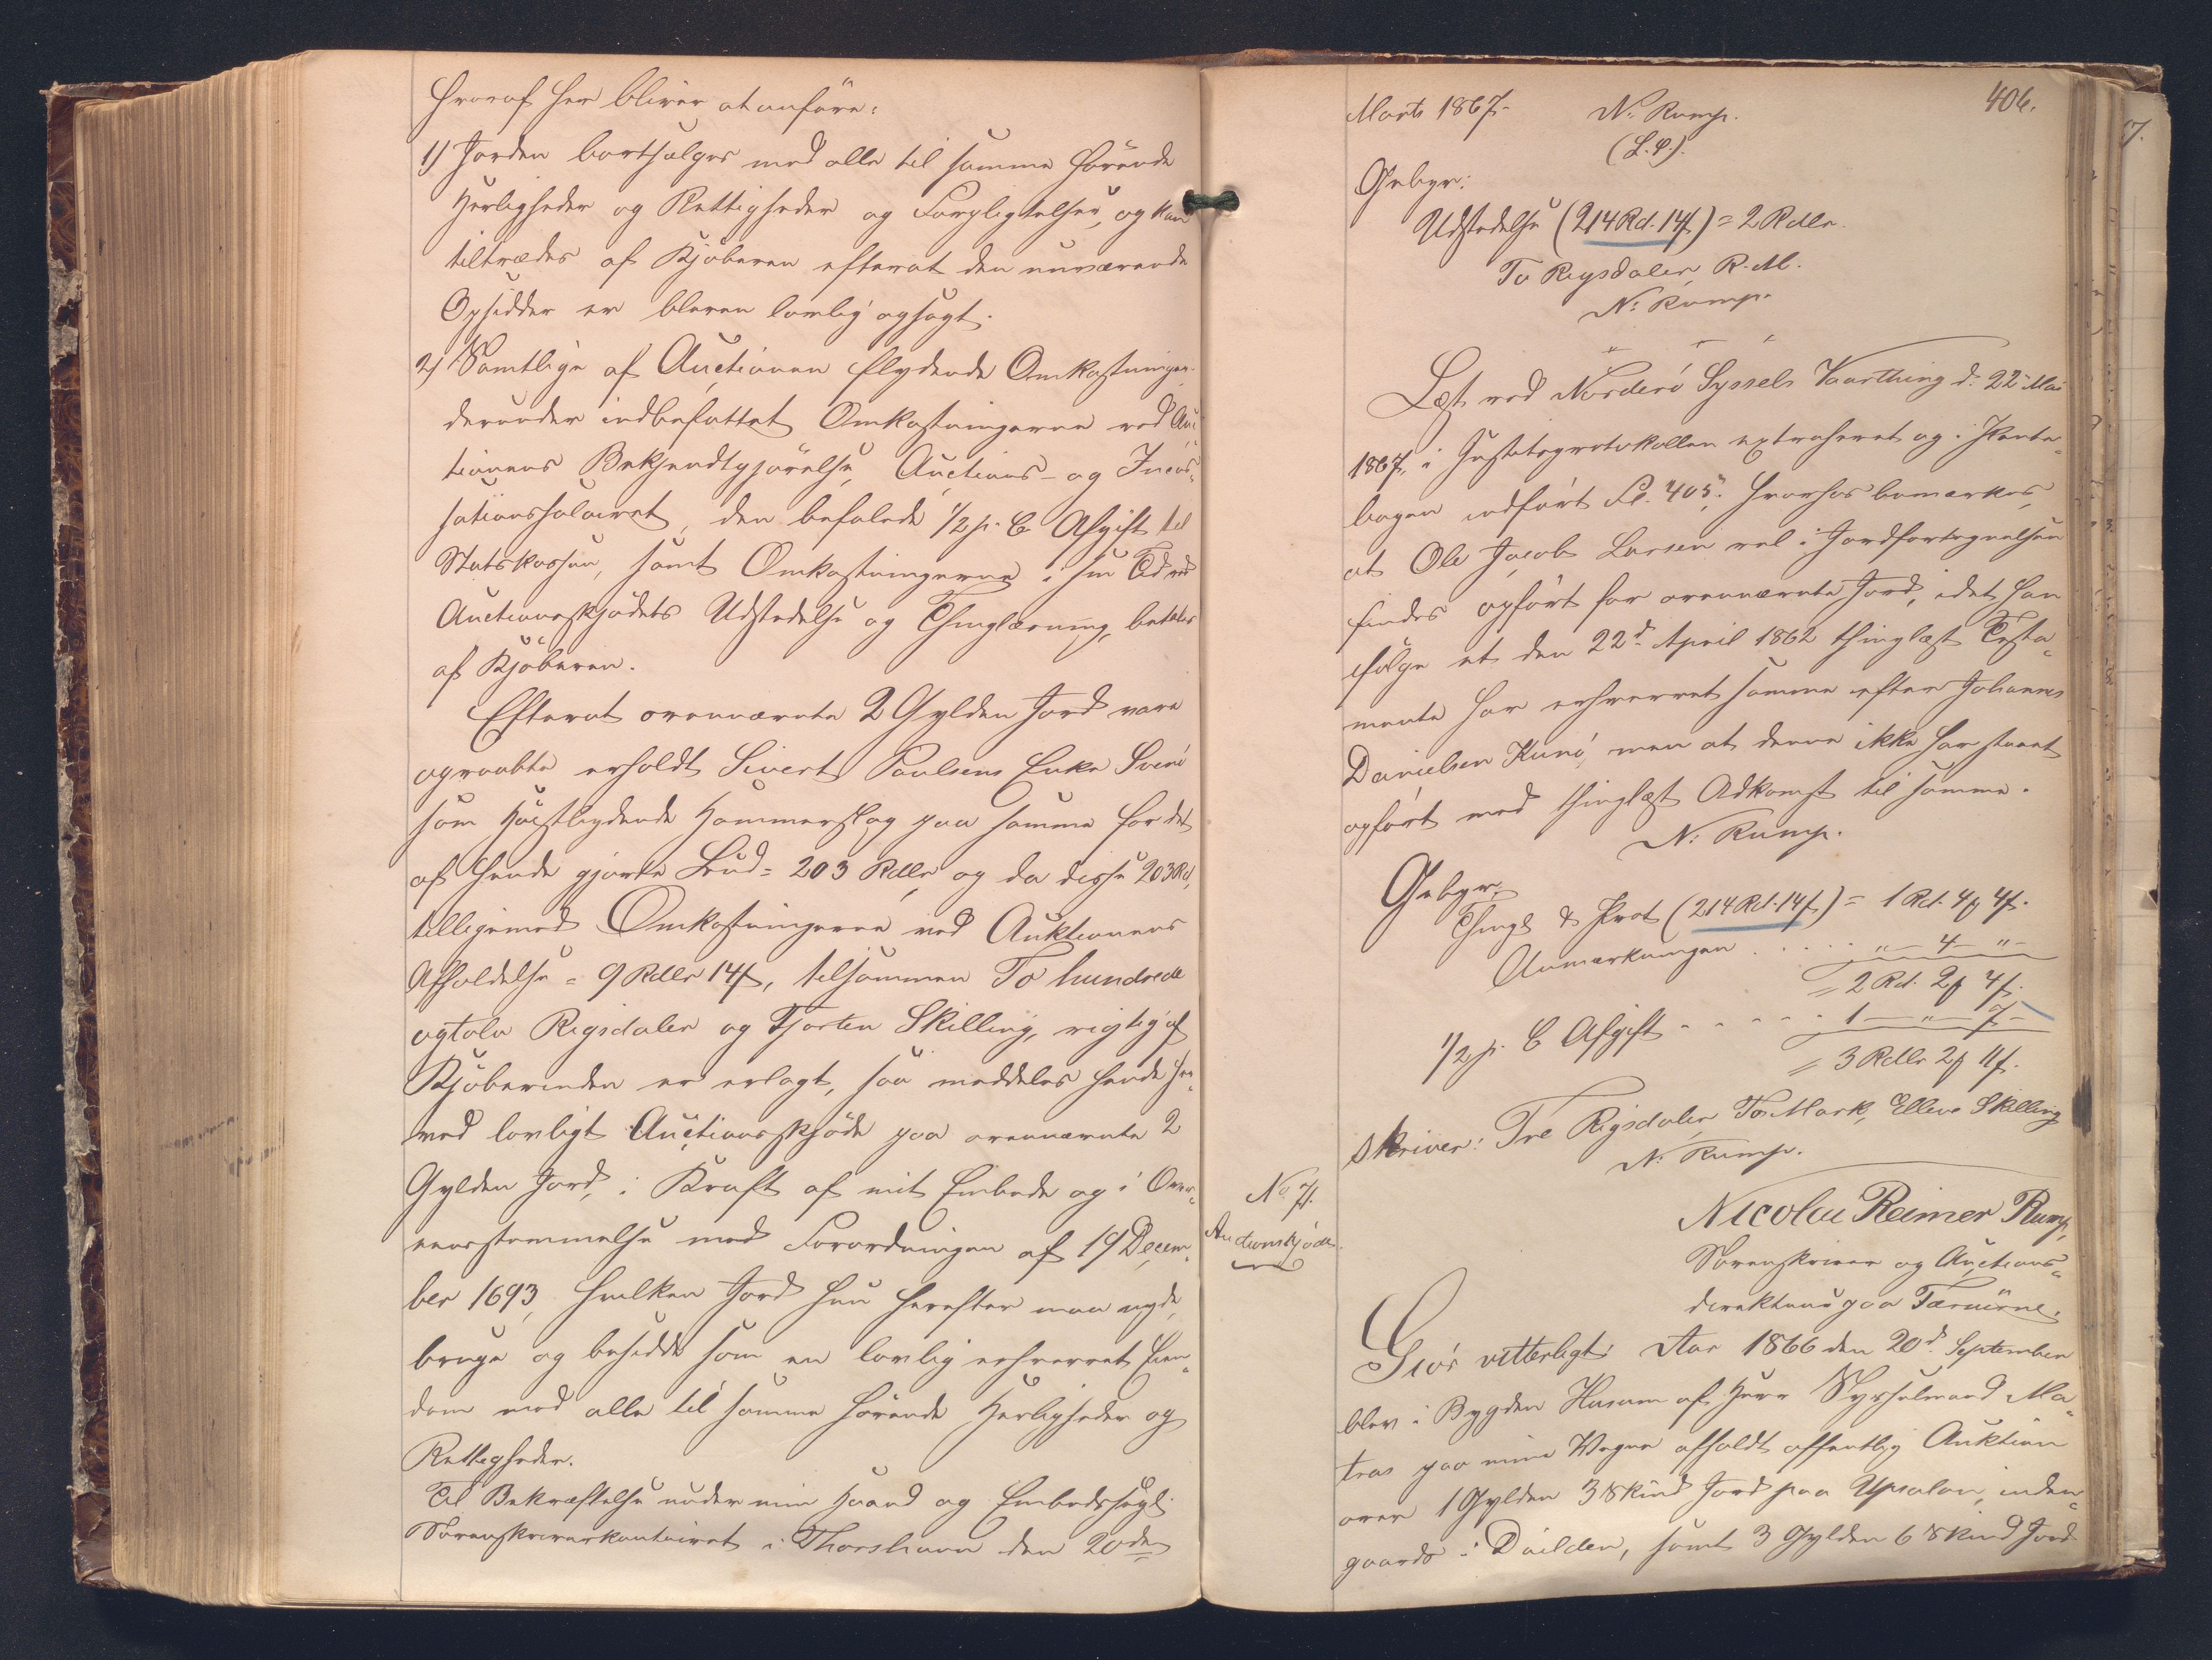 hvoraf her bliver at anføre:
1) Jorden bortsælges med alle til samme hørende
Herligheder og Rettigheder og Forpligtelser, og kan
tiltrædes af Kjøberen efterat den nuværende
Opsidder er bleven lovlig opsagt.
2) Samtlige af Auctionen flydende Omkostninger
derunder indbefattet Omkostningerne ved Auc-
tionens Bekjendtgjørelse, Auctions- og Incas-
sationssalairet, den befalede 1/2 p. C Afgift til
Statskassen, samt Omkostningerne i sin Tid ved
Auctionsskjødets Udstedelse og Thinglæsning, betales
af Kjøberen.
Efterat ovennævnte 2 Gylden Jord vare
opraabte erholdt Sivert Poulsens Enke Svinø
som høistbydende Hammerslag paa samme for det
af hende gjorte Bud = 203 Rdlr og da disse 203 Rd,
tilligemed Omkostningerne ved Auktionens
Afholdelse = 9 Rdlr 14 s, tilsammen To hundrede
ogtolv Rigsdaler og Fjorten Skilling, rigtig af
Kjøberinden er erlagt, saa meddeles hende her-
ved lovligt Auctionsskjøde paa ovennævnte 2
Gylden Jord, i Kraft af mit Embede og i Over-
eensstemmelse med Forordningen af 19 Decem-
ber 1693, hvilken Jord hun herefter maa nyde,
bruge og besidde som en lovlig erhvervet Eien-
dom med alle til samme hørende Herligheder og
Rettigheder.
Til Bekræftelse under min Haand og Embedssegl.
Sorenskriverkontoiret i Thorshavn den 20den
406.
Marts 1867.
N: Rump.
(L.S.).
Gebyr:
Udstedelse (214 Rd. 14 s) = 2 Rdlr.
To Rigsdaler R. M.
N: Rump.
Læst ved Norderø Syssels Vaarthing d: 22 Mai
1867, i Justitsprotokollen extraheret og i Pante-
bogen indført Fl. 405; hvorhos bemærkes,
at Ole Jacob Larsen vel i Jordfortegnelsen
findes opført for ovennævnte Jord, idet han
ifølge et den 22d April 1862 thinglæst Testa-
mente har erhvervet samme efter Johannes
Danielsen Kunø, men at denne ikke har staaet
opført med thinglæst Adkomst til samme.
N: Rump.
Gebyr:
Thingl & Prot (214 Rd. 14 s) = 1 Rd. 4 m 4 s.
Anmærkningen . . . . " — 4 — " —
= 2 Rd. 2 m 4 s.
1/2 p. C Afgift - - - - - 1 — " — 7 —
= 3 Rdlr 2 m 11 s.
skriver: Tre Rigsdaler, To Mark, Elleve Skilling
N: Rump.
No 7.
Auctionsskjøde.
Nicolai Reimer Rump,
Sorenskriver og Auctions-
direkteur paa Færøerne.
Giør vitterligt: Aar 1866 den 20d September
blev i Bygden Husum af Herr Sysselmand Ma-
tras paa mine Vegne afholdt offentlig Auktion
over 1 Gylden 3 Skind Jord paa Upsalon, inden-
gaards i Dailden, samt 3 Gylden 6 Skind Jord